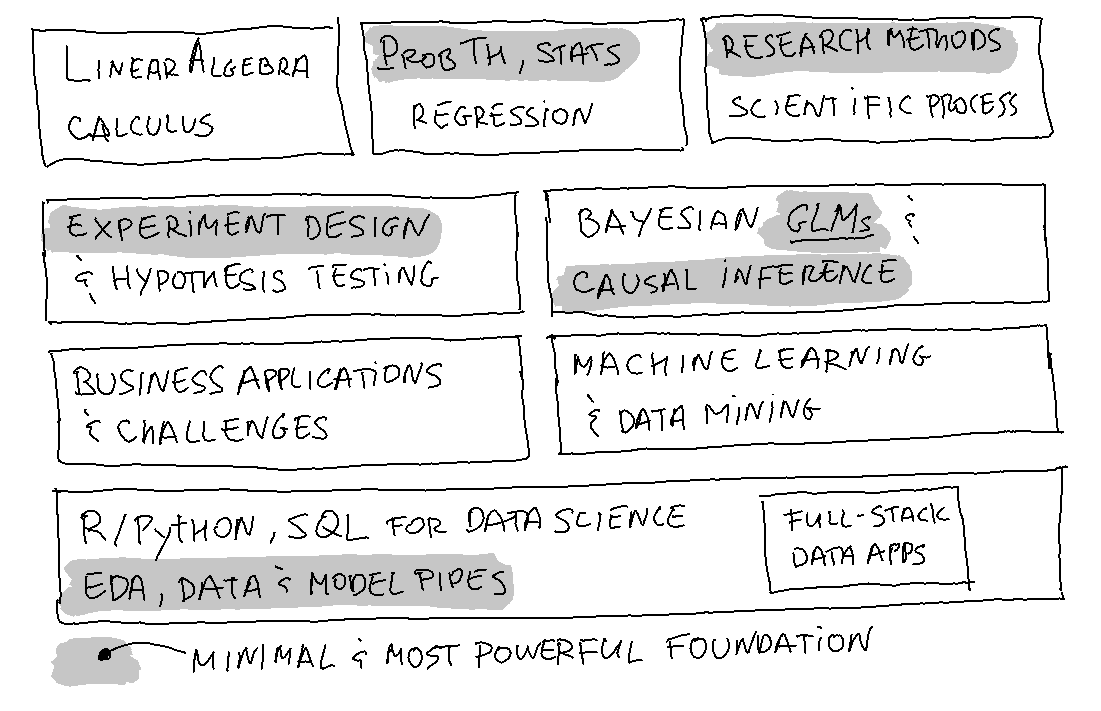 LINEAR ALGEBRA
CALCULUS
PROB TH, STATS
REGRESSION
RESEARCH METHODS
SCIENTIFIC PROCESS
EXPERIMENT DESIGN
& HYPOTHESIS TESTING
BAYESIAN GLMs &
CAUSAL INFERENCE
BUSINESS APPLICATIONS
& CHALLENGES
MACHINE LEARNING
& DATA MINING
R/PYTHON, SQL FOR DATA SCIENCE
EDA, DATA & MODEL PIPES
FULL-STACK
DATA APPS
MINIMAL & MOST POWERFUL FOUNDATION